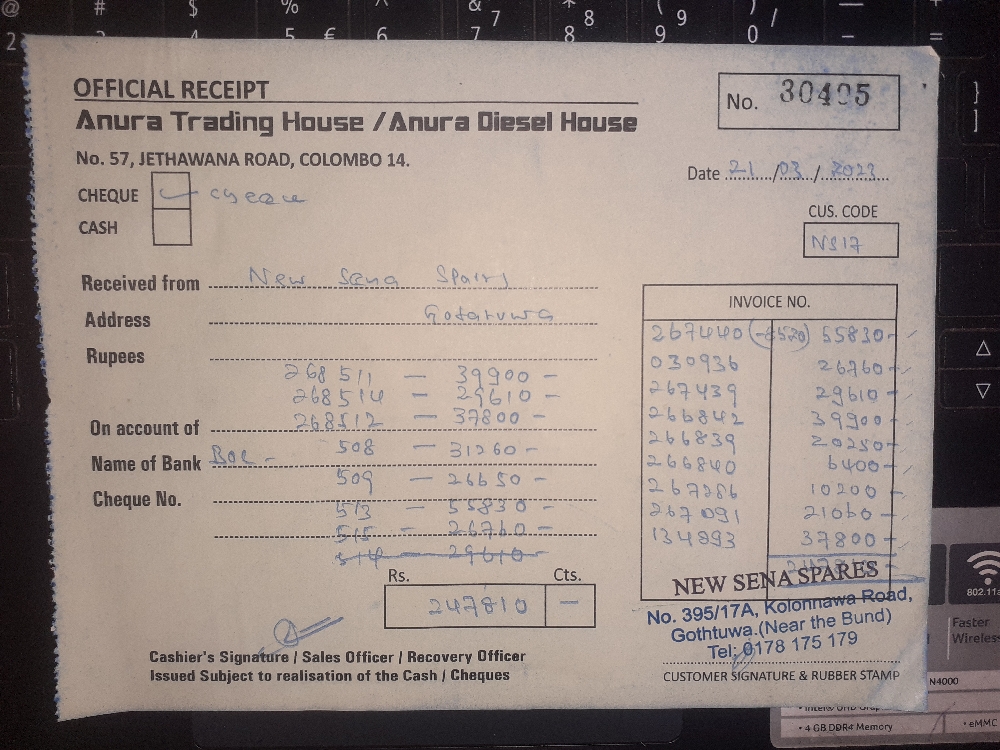 OFFICIAL RECEIPT
No. 30495
Anura Trading House / Anura Diesel House
No. 57, JETHAWANA ROAD, COLOMBO 14.
Date 21/03/2023
CHEQUE cheque
CASH
CUS. CODE
NS17
Received from New Sena Spairs
Address Gotaruwa
Rupees
268511 — 39900 –
268514 – 29610 –
268512 – 37800 –
On account of
508 – 31260 –
Name of Bank Boc –
509 – 26650 –
Cheque No.
513 – 55830 –
515 – 26760 –
514 – 29610 –
INVOICE NO.
267440 55830 –
030936 26760 –
267439 29610 –
266842 39900 –
266839 20250 –
266840 6400 –
267286 10200 –
267091 21060 –
134893 37800 –
Rs. Cts.
247810 —
NEW SENA SPARES
No. 395/17A, Kolonnawa Road,
Gothtuwa.(Near the Bund)
Tel: 0178 175 179
Cashier's Signature / Sales Officer / Recovery Officer
Issued Subject to realisation of the Cash / Cheques
CUSTOMER SIGNATURE & RUBBER STAMP
802.11a
Faster
Wireless
N4000
• 4 GB DDR4 Memory
• eMMC